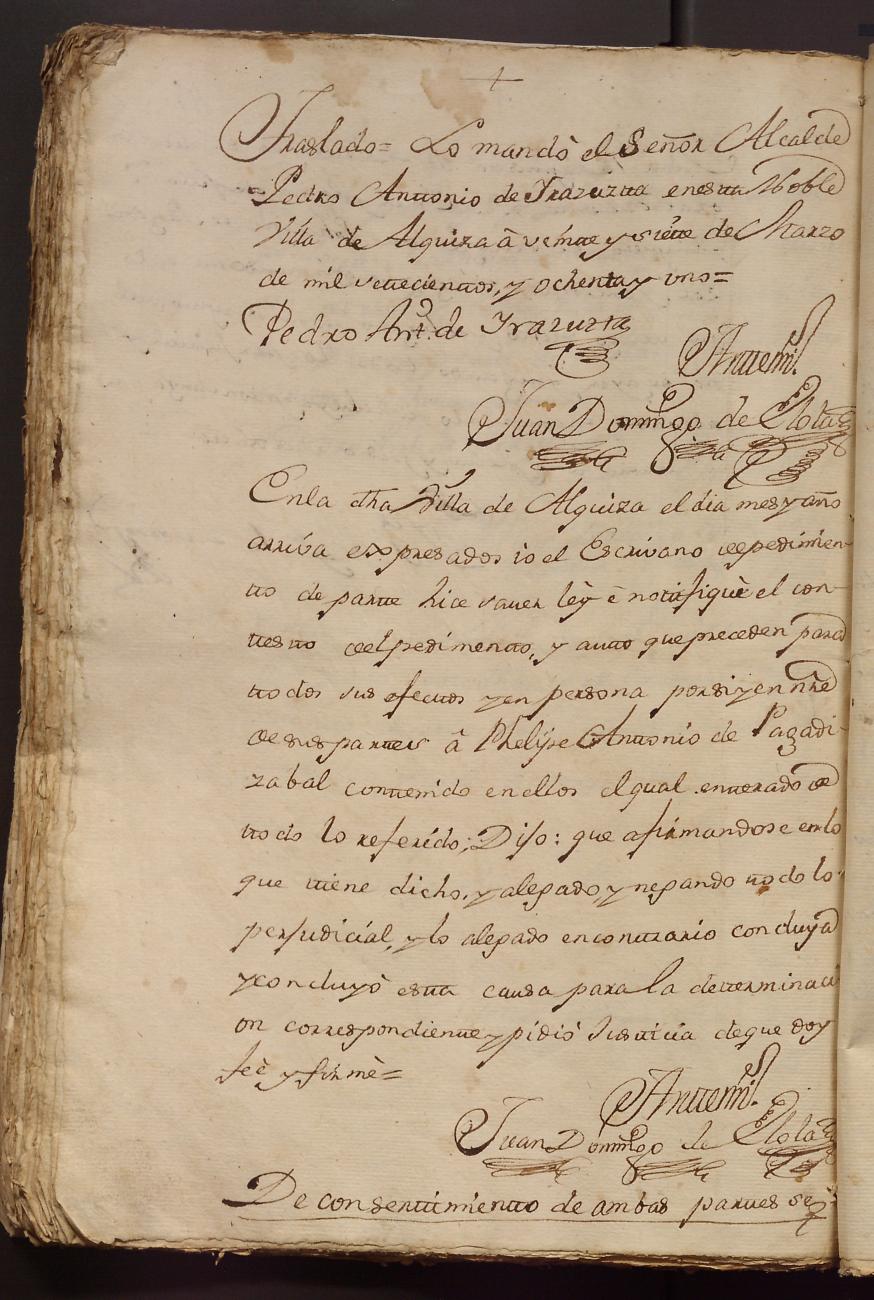 +
Traslado= Lo mandò el Señor Alcalde
Pedro Anttonio de Yrazuzta en estta Noble
Villa de Alquiza â veintte y siette de Marzo
de mil settecienttos, y ochenta y uno=
Pedro Antt. de Yrazuzta
Anttemi
Juan Domingo de
En la dha Villa de Alquiza el dia mes y año
arriva expresados io el Escrivano de pedimien-
tto de partte hice saver leỳ è nottifiquè el con-
ttestto del pedimentto, y autto que preceden para
ttodos sus efecttos y en persona por si y en nre
de sus parttes â Phelipe Anttonio de Pagadi-
zabal conttenido en ellos el qual entterado de
ttodo lo referido, Dijo: que afirmandose en lo
que ttiene dicho, y alegado, y negando ttodo lo
perjudicial, y lo alegado en conttrario concluya
y concluyò estta causa para la detterminaci
on correspondientte y pidiò Justticia de que doy
feè y firmè=
Anttemi
Juan Domingo de
De consenttimientto de ambas parttes se